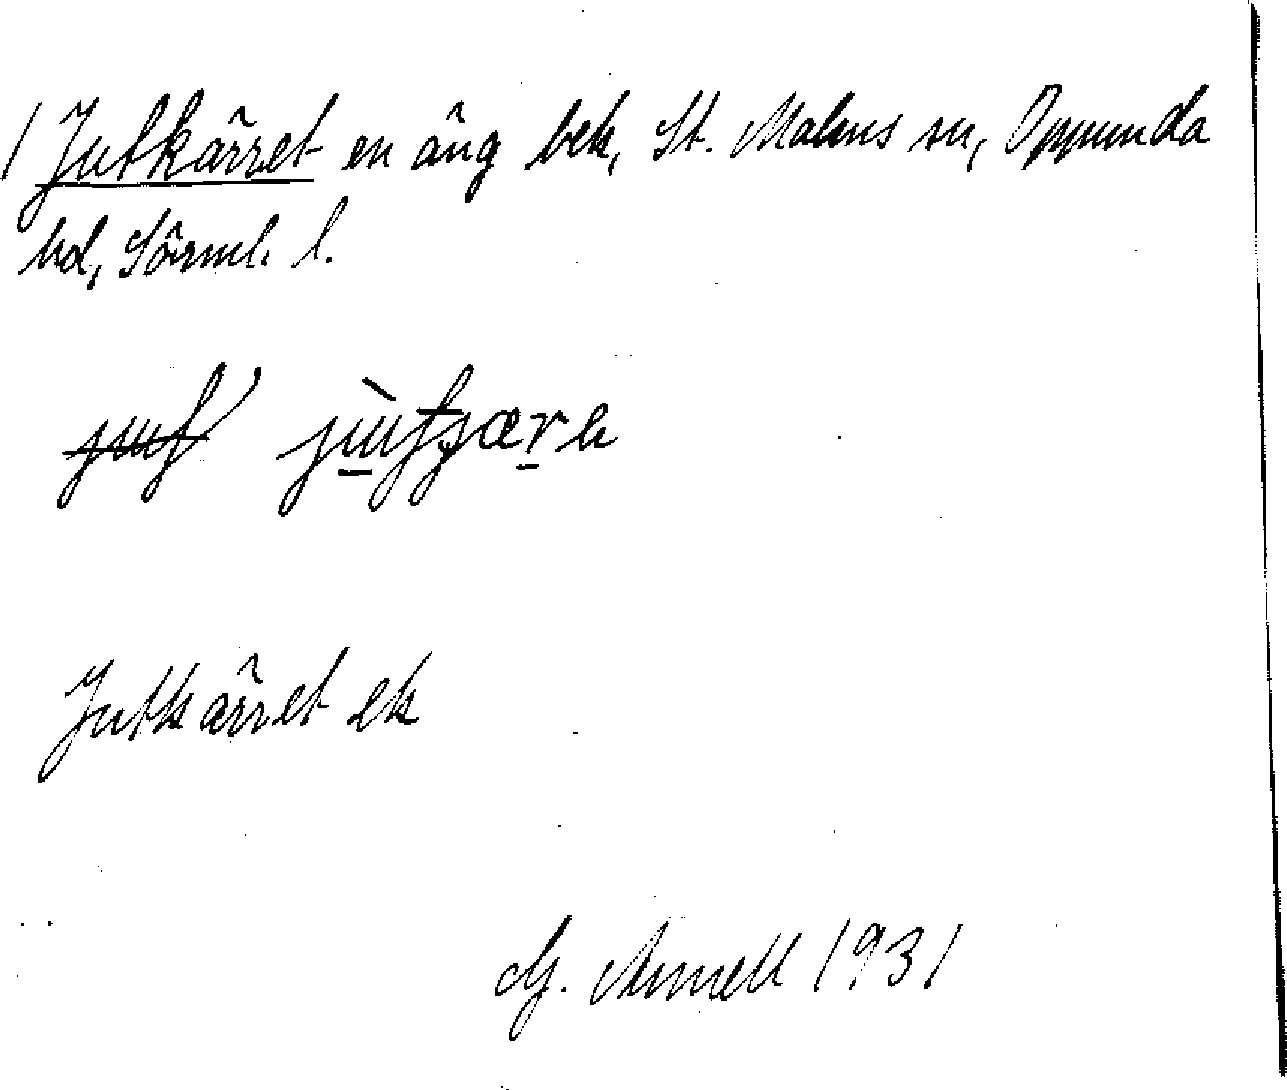 / Jutkärret en äng bek, St. Malms sn, Oppunda
hd, Sörml. l.
Jutkärret ek
G. Annell 1931